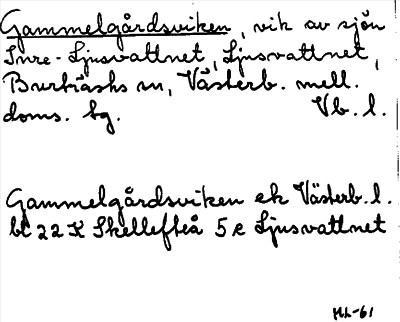 Gammelgårdsviken, vik av sjön
Inre-Ljusvattnet, Ljusvattnet,
Burträsks sn, Västerb. mell.
doms. bg. Vb. l.
Gammelgårdsviken ek Västerb. l.
bl 22 K Skellefteå 5 e Ljusvattnet
HL-61